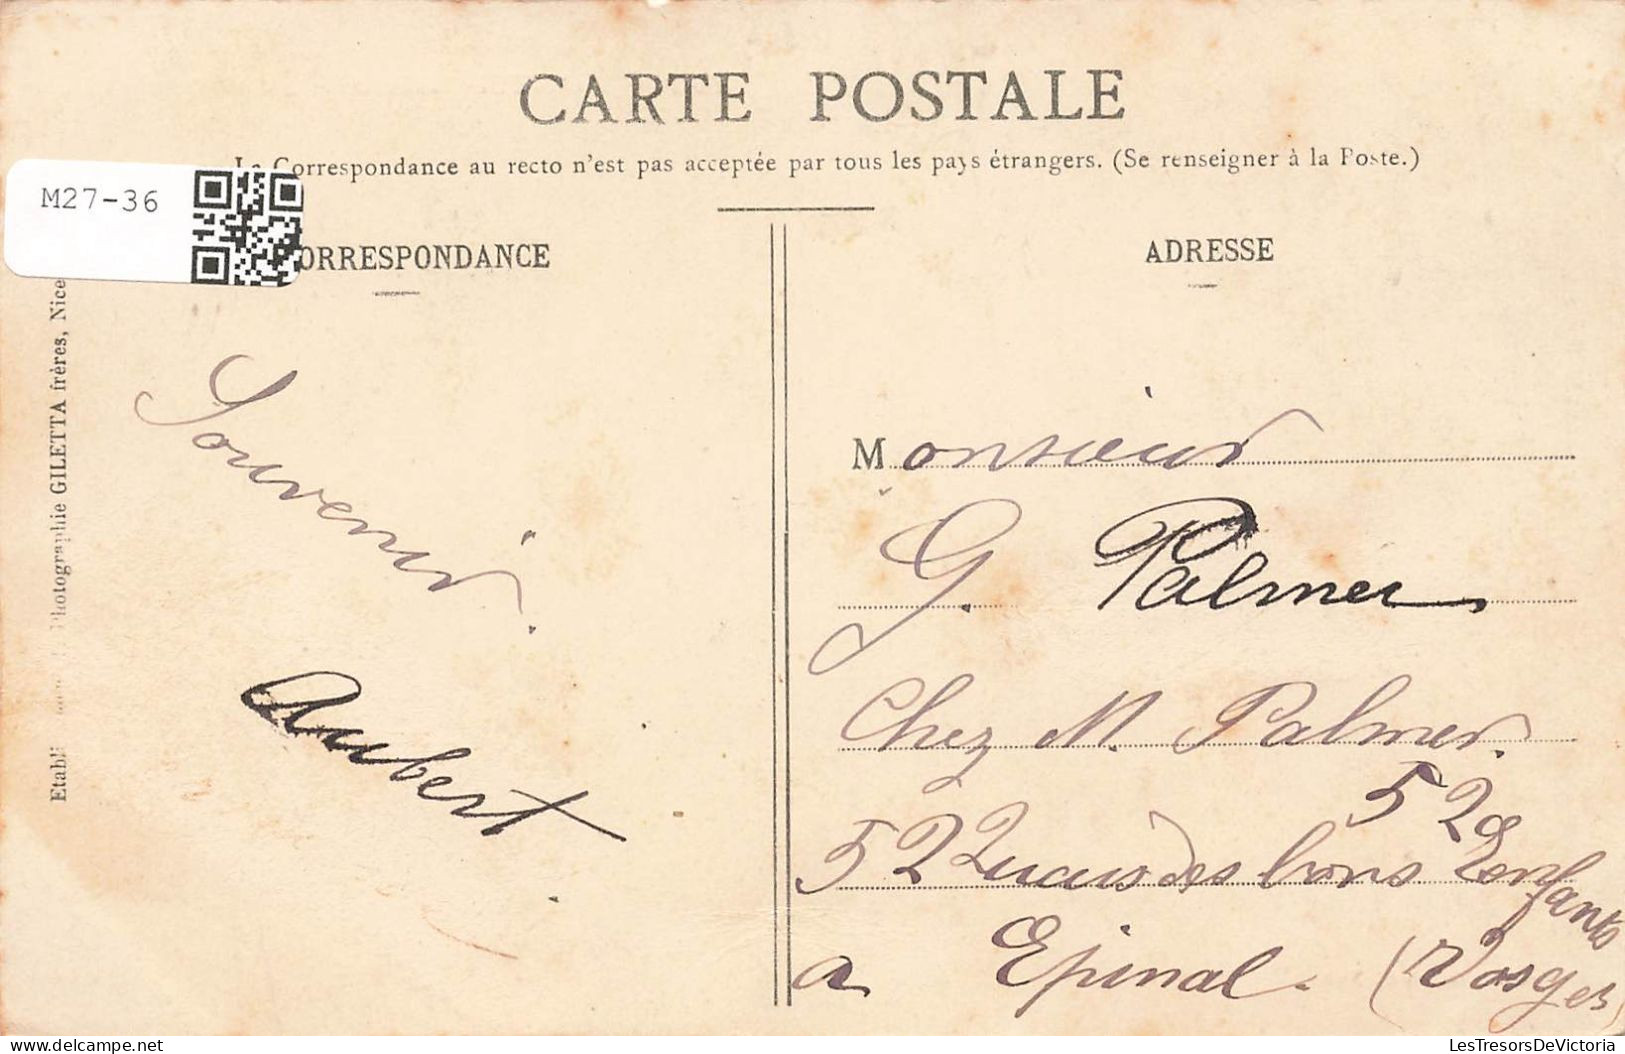 CARTE POSTALE
La Correspondance au recto n'est pas acceptée par tous les pays étrangers. (Se renseigner à la Poste.)
M27-36
ORRESPONDANCE
ADRESSE
Photographie GILETTA frères, Nice
Souvenir.
Aubert
Monsieur
G. Palmer
Chez M. Palmer.
52
52 Quais des bons Enfants
a Epinal. (Vosges)
delcampe.net
LesTresorsDeVictoria